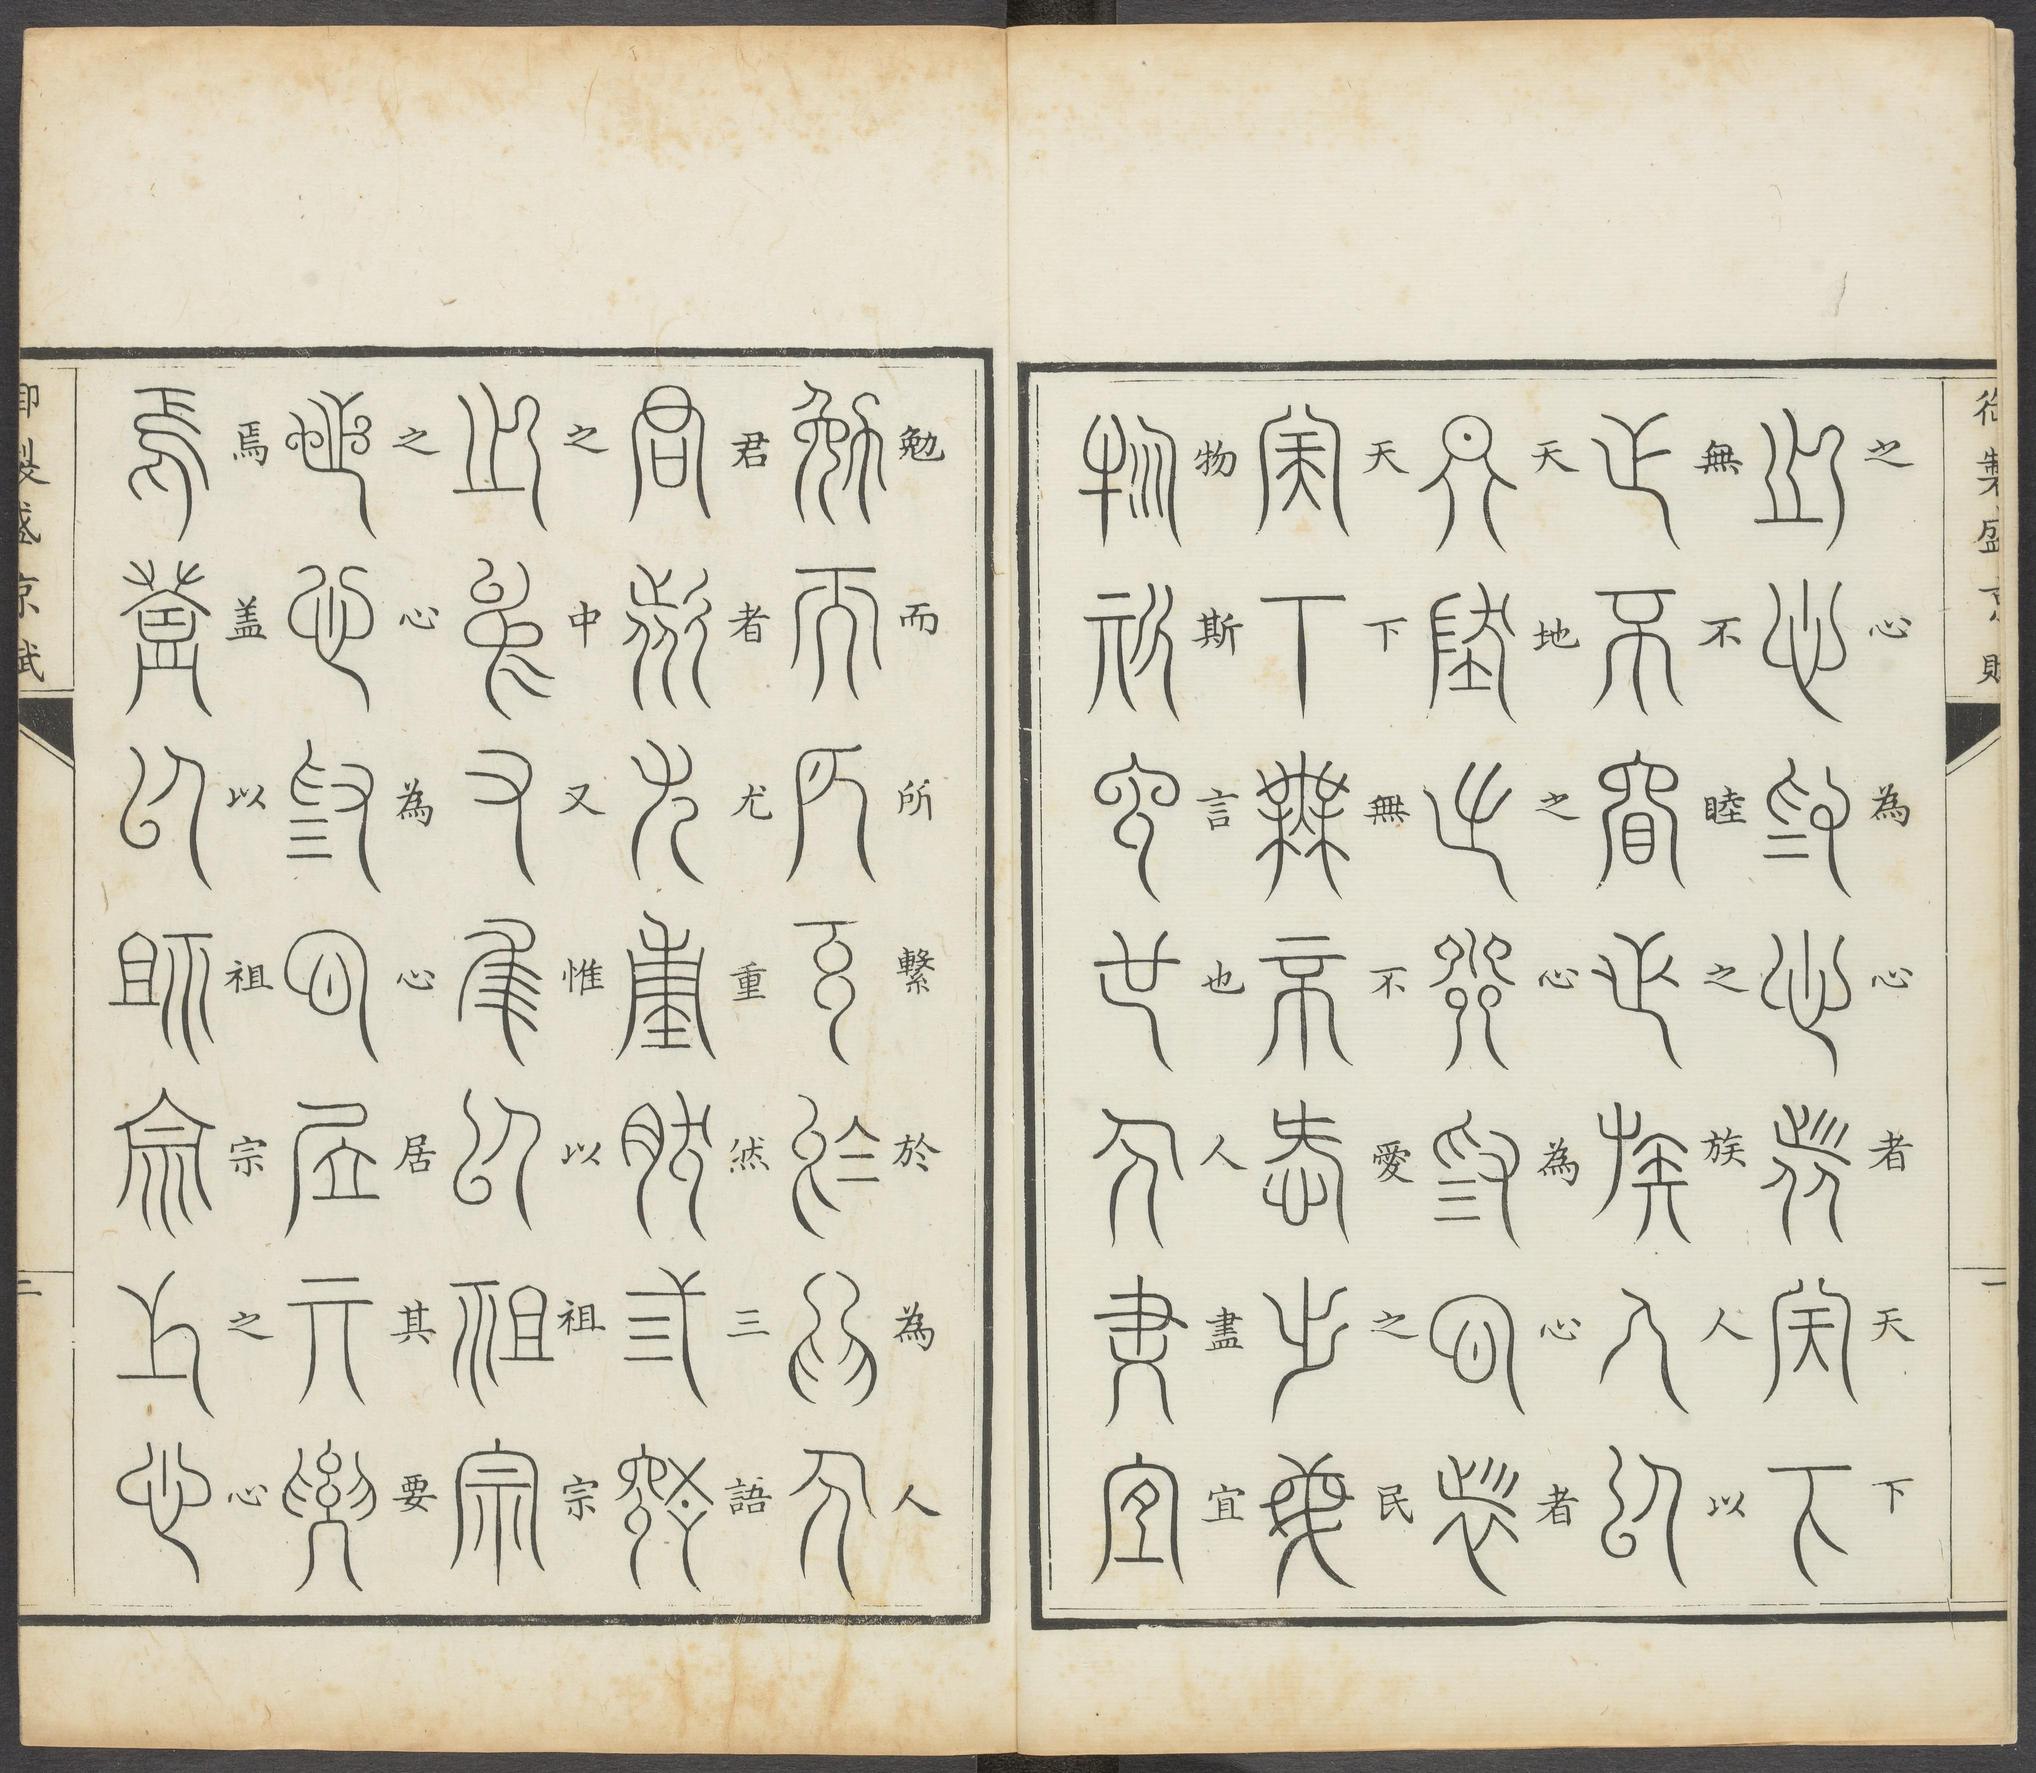 御製盛京賦
之心為心者天下
無不睦之族人以
天地之心為心者
天下無不愛之民
物斯言也人盡宜
勉而所繫於為人
君者尤重然三語
之中又惟以祖宗
之心為心居其要
焉盖以祖宗之心
御製盛京賦
二